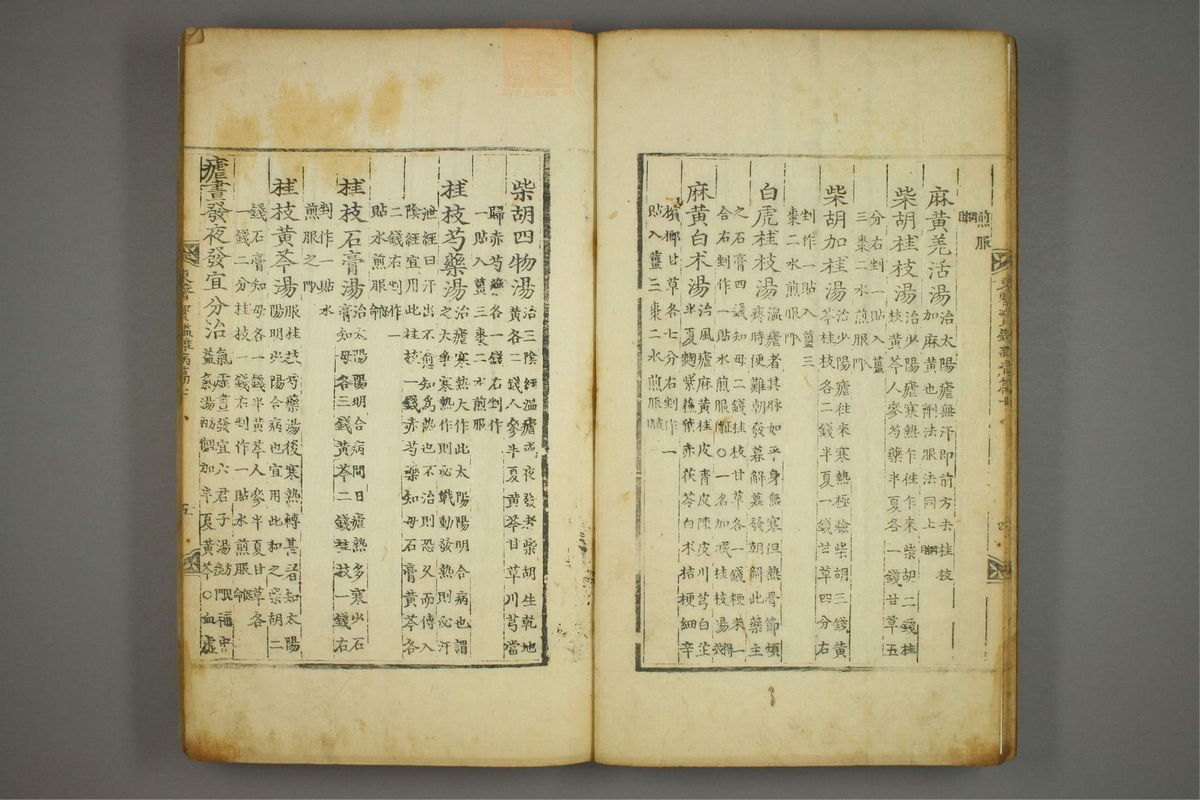 煎服
綱目
麻黃羌活湯
治太陽瘧無汗即前方去桂枝
加麻黃也劑法服法同上綱目
柴胡桂枝湯
治少陽瘧寒熱乍往乍來柴胡二錢桂
枝黃芩人參芍藥半夏各一錢甘草五
分右剉一貼入薑
三棗二水煎服入門
柴胡加桂湯
治少陽瘧往來寒熱極驗柴胡三錢黃
芩桂枝各二錢半夏一錢甘草四分右
剉作一貼入薑三
棗二水煎服入門
白虎桂枝湯
溫瘧者其脉如平身無寒但熱骨節煩
疼時便難朝發暮解暮發朝解此藥主
之石膏四錢知母二錢桂枝甘草各一錢粳米一
合右剉作一貼水煎服○一名加减桂枝湯得效
麻黃白朮湯
治風瘧麻黃桂皮靑皮陳皮川芎白芷
半夏麴紫蘇葉赤茯苓白朮桔梗細辛
檳榔甘草各七分右剉作一
貼入薑三棗二水煎服
東醫寶鑑雜病篇 四
柴胡四物湯
治三陰經溫瘧或夜發者柴胡生乾地
黃各二錢人參半夏黃芩甘草川芎當
歸赤芍藥各一錢右剉作
一貼入薑三棗二水煎服
桂枝芍藥湯
治瘧寒熱大作此太陽陽明合病也謂
之大爭寒熱作則必戰動發熱則必汗
泄經曰汗出不愈知爲熱也不治則恐久而傳入
陰經宜用此桂枝一錢赤芍藥知母石膏黃芩各
二錢右剉作一
貼水煎服
桂枝石膏湯
治太陽陽明合病間日瘧熱多寒少石
膏知母各三錢黃芩二錢桂枝一錢右
剉作一貼水
煎服之入門
桂枝黃芩湯
服桂枝芍藥湯後寒熱轉甚者知太陽
陽明少陽合病也宜用此和之柴胡二
錢石膏知母各一錢半黃芩人參半夏甘草各
一錢二分桂枝一錢右剉作一貼水煎服
瘧晝發夜發宜分治
氣虛晝發宜六君子湯補中
益氣湯加半夏黃芩○血虛
東醫寶鑑雜病篇 五